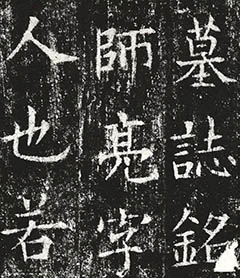 墓誌銘
師亮字
人也若